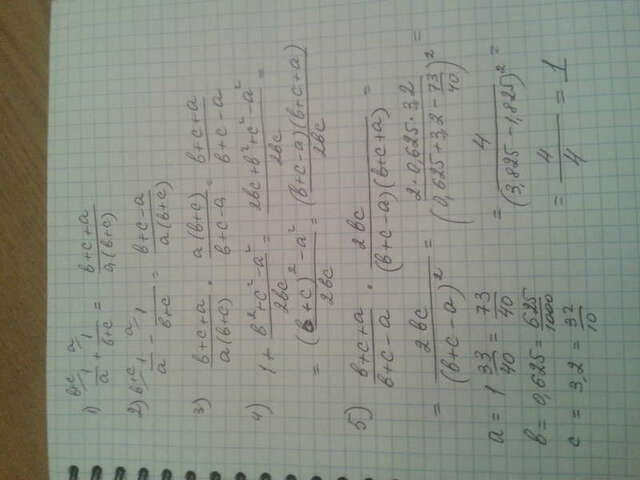 1) b+c/ 1/a + a/ 1/(b+c) = (b+c+a)/(a(b+c))
2) b+c/ 1/a - a/ 1/(b+c) = (b+c-a)/(a(b+c))
3) (b+c+a)/(a(b+c)) · (a(b+c))/(b+c-a) = (b+c+a)/(b+c-a)
4) 1 + (b²+c²-a²)/(2bc) = (2bc+b²+c²-a²)/(2bc) =
= ((b+c)²-a²)/(2bc) = ((b+c-a)(b+c+a))/(2bc)
5) (b+c+a)/(b+c-a) · (2bc)/((b+c-a)(b+c+a)) =
= (2bc)/((b+c-a)²) = (2·0,625·3,2)/((0,625+3,2-73/40)²) =
a = 1 33/40 = 73/40 = 4/((3,825-1,825)²) =
b = 0,625 = 625/1000 = 4/4 = 1
c = 3,2 = 32/10